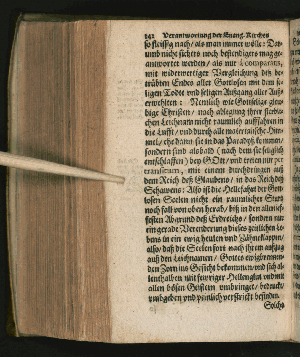 242 Verantwortung der Evang. Kirches
so fleissig nach / als man immer wölle: Dar-
umb nicht sichers noch bestendigers mag ge-
antwortet werden / als nur à comparatis,
mit widerwertiger Vergleichung des be-
trübten Endes aller Gottlosen mit dem se-
ligen Todte vnd seligen Außgang aller Auß-
erwehlten: Nemlich wie Gottselige gleu-
bige Christen / nach ablegung ihrer sterbli-
chen Leichnam nicht raumlich auffahren in
die Lufft / vnd durch alle materialische Him-
mel / ehe dann sie in das Paradyß kommen /
sondern sind alsbald (nach dem sie seliglich
entschlaffen) bey GOtt / vnd treten nur per
transitum, mit einem durchdringen auß
dem Reich deß Glaubens / in das Reich deß
Schawens: Also ist die Hellefahrt der Gott-
losen Seelen nicht ein raumlicher Sturtz
noch fall von oben herab / biß in den
festen Abgrund deß Erdreichs / sondern nur
ein gerade Veränderung dieses zeitlichen le-
bens in ein ewig heulen vnd Zähnklappen /
also / daß die Seelen sofort nach ihrem außgang
auß den Leichnamen / Gottes ewig brennen-
den Zorn ins Gesicht bekommen / vnd sich al-
lenthalben mit fewriger Hellenglut vnd mit
allen bösen Geistern vmbringet / bedeckt /
vmbgeben vnd peinlich verstrickt befinden.
Solchs